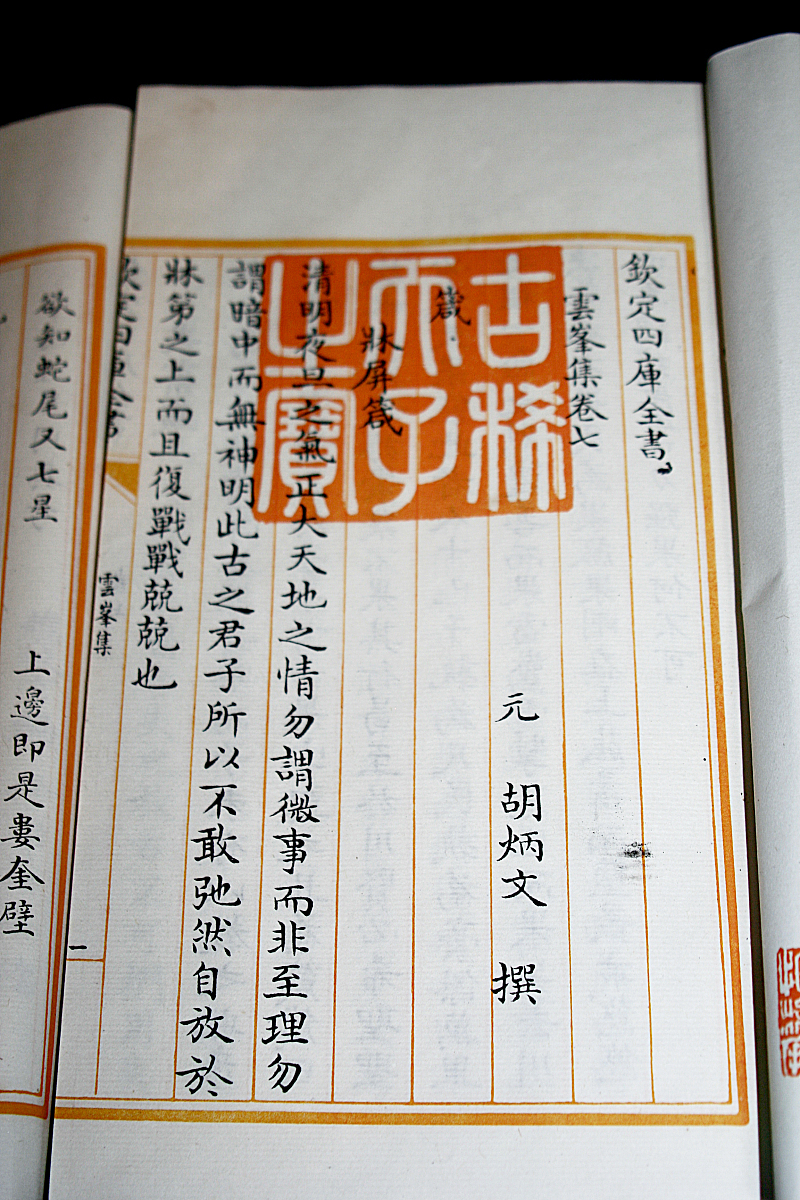 欽定四庫全書
雲峯集卷七
元 胡炳文 撰
箴
牀屏箴
清明夜旦之氣正大天地之情勿謂微事而非至理勿
謂暗中而無神明此古之君子所以不敢弛然自放於
牀笫之上而且復戰戰兢兢也
欽定四庫全書
雲峯集
一
古稀天子之寶
欲知蛇尾又七星 上邊即是婁奎壁